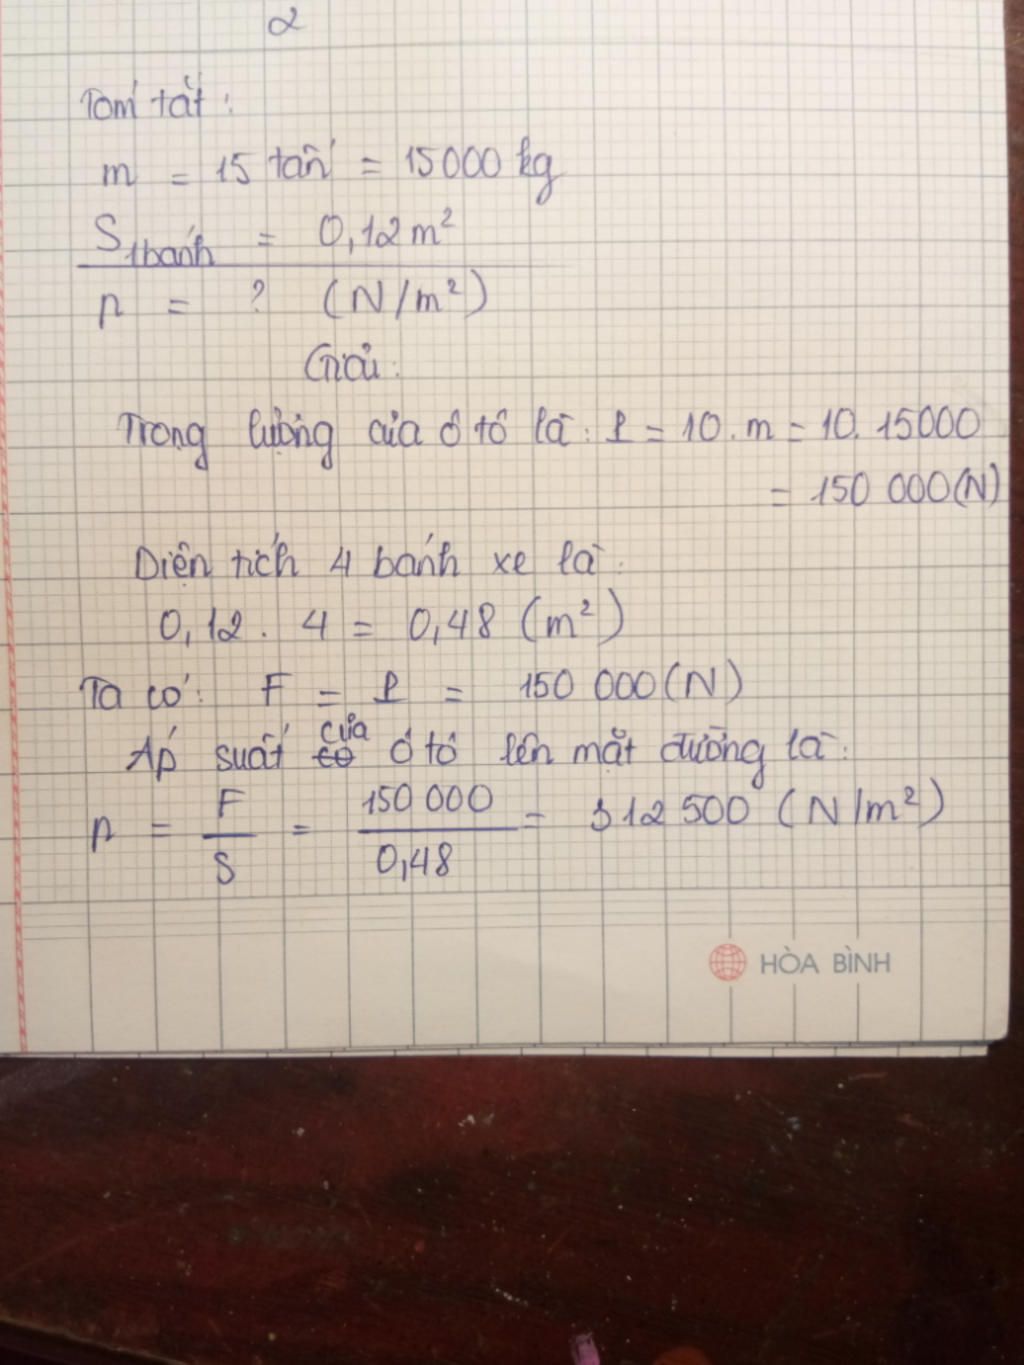 2
Tóm tắt:
m = 15 tấn = 15000 kg
S1bánh = 0,12 m²
p = ? (N/m²)
Giải:
Trọng lượng của ô tô là: P = 10.m = 10.15000
= 150 000(N)
Diện tích 4 bánh xe là:
0,12 . 4 = 0,48 (m²)
Ta có: F = P = 150 000(N)
Áp suất của ô tô lên mặt đường là:
p = F/S = 150 000/0,48 = 312 500 (N/m²)
HÒA BÌNH